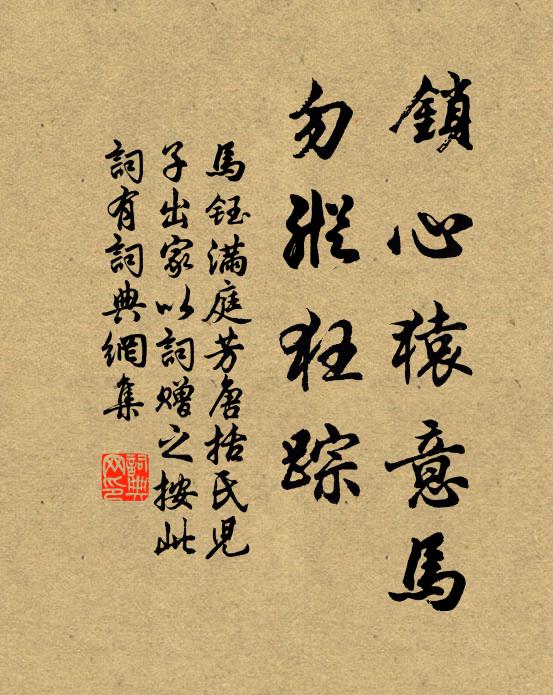 鎖心猿意馬
勿縱狂踪
馬鈺滿庭芳唐括氏兒
子出家以詞贈之按此
詞有詞典網集
詞典
网印